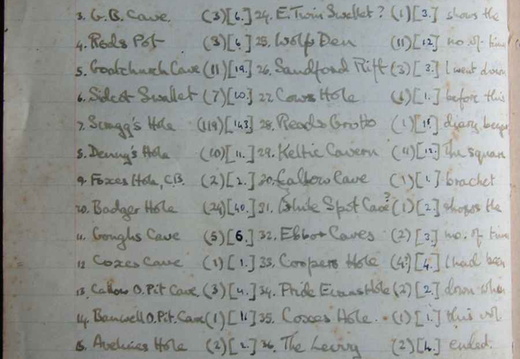 3. G.B. Cave (3)[6.] 24. E. Twin Swallet? (1)[3.] shows the
4. Rods Pot (3)[4.] 25. Wolf Den (11)[12.] no. of times
5. Goatchurch Cave (11)[19.] 26. Sandford Rift (3)[3.] I went down
6. Sidcot Swallet (7)[20.] 27. Cows Hole [1.] before this
7. Scragg's Hole (119)[143] 28. Reads Grotto (1) diary begins
8. Denny's Hole (10)[11.] 29. Keltic Cavern The square
9. Foxes Hole, C.B. (2)[2.] 30. Cave (1)[1.] bracket
10. Badger Hole (24)[40.] 31. White Spot Cave? (1)[2.] shows the
11. Goughs Cave (5)[6.] 32. Ebbor Caves (2)[2.] no. of times
12. Coxes Cave (1)[1.] 33. Coopers Hole (4?)[4.] I had been
13. O. Pit Cave (3)[4.] 34. Pride Evans Hole (2)[2.] down when
14. Banwell O. Pit. Cave (1)[11.] 35. Coxes Hole. (1)[1.] this vol
15. Avelines Hole (2)[2.] 36. The (2)[4.] ended.